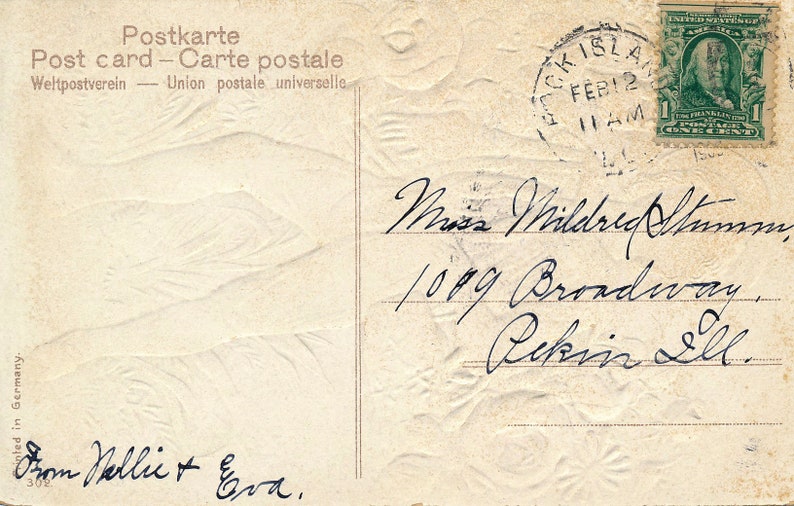 Postkarte
Post card – Carte postale
Weltpostverein — Union postale universelle
ROCK ISLAND
FEB 12
11 AM
UNITED STATES OF
AMERICA
1 FRANKLIN 1
POSTAGE
ONE CENT
Miss Mildred Stumm,
1009 Broadway,
Pekin Ill.
Printed in Germany.
From Nellie &
Eva.
302.